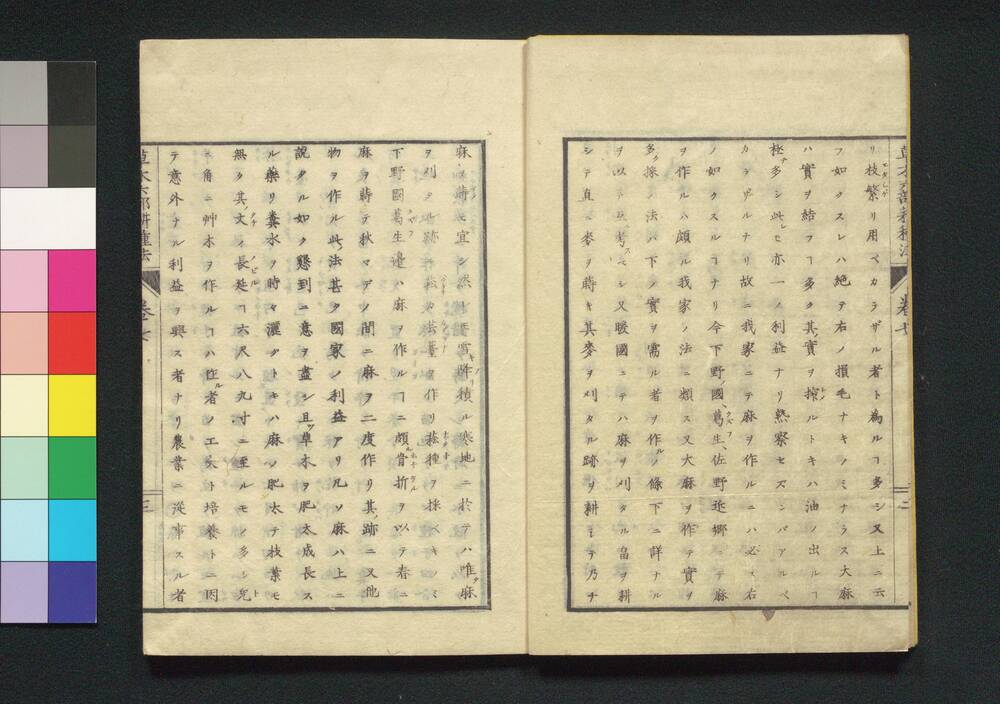 リ枝繁リ用ベカラザル者ト為ルヿ多シ又上ニ云
フ如クスレハ絶テ右ノ損毛ナキノミナラス大麻
ハ實ヲ結フヿ多ク其實ヲ搾ルトキハ油ノ出ルヿ
極多シ此レモ亦一ノ利益ナリ熟察セズンバアルベ
カラザルナリ故ニ我家ニテ麻ヲ作ルニハ必ス右
ノ如クスルヿナリ今下野ノ國葛生佐野近郷ニテ麻
ヲ作ルハ頗ル我家ノ法ニ類ス又大麻ヲ作テ實ヲ
多ク採ノ法ハ下ノ實ヲ需ル者ヲ作ルノ條下ニ詳ナル
ヲ以テ參考スベシ又暖國ニテハ麻ヲ刈タル畠ヲ耕
シテ直ニ麥ヲ蒔キ其麥ヲ刈タル跡ヲ耕シテ乃チ
草木六部耕種法 卷七 二
麻ヲ蒔モ宜シ然トモ雪積ル寒地ニ於テハ唯麻
ヲ刈タル跡ニ蕓薹ヲ作リ菜種ヲ採ベキノミ
下野國葛生邊ハ麻ヲ作ルヿニ頗ル肯折ヲ以テ春ニ
麻ヲ蒔テ秋マデノ間ニ麻ヲ二度作リ其跡ニ又他
物ヲ作ル此法甚タ國家ノ利益アリ凡ソ麻ハ上ニ
説タル如ク懇到ニ意ヲ盡シ且ツ草木ヲ肥太成長ス
ル藥リ糞水ヲ時々灌クトキハ麻ノ肥太テ枝葉モ
無ク其丈ノ長延ヿ六尺八九寸ニ至ルモノ多シ兎
ニ角ニ艸木ヲ作ルヿハ作ル者ノ工夫ト培養トニ因
テ意外ナル利益ヲ興ス者ナリ農業ニ從事スル者
草木六部耕種法 卷七 三